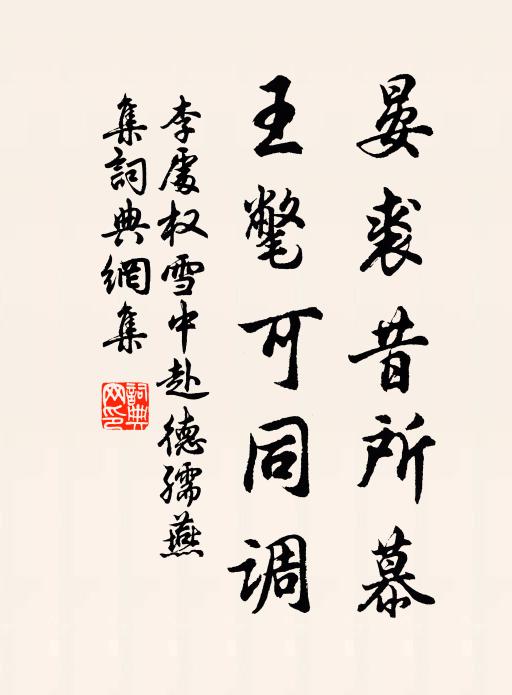 晏裘昔所慕
王氅可同调
李處权雪中赴德孺燕
集詞典網集
詞典網印